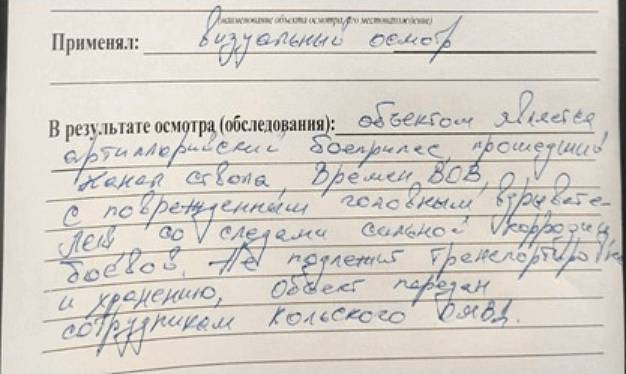 (наименование объекта осмотра, его местонахождение)
Применял: визуальный осмотр
В результате осмотра (обследования): объектом является
артиллерийский боеприпас, прошедший
канал ствола, времен ВОВ,
с поврежденным головным взрывате-
лем со следами сильной коррозии,
боевой. Не подлежит транспортировке
и хранению, объект передан
сотрудникам Кольского ОМВД.